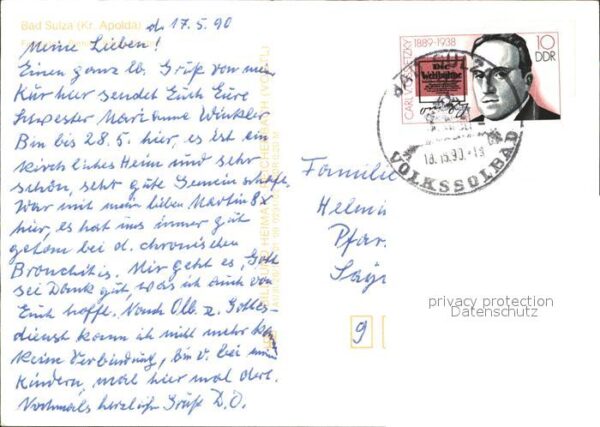 Bad Sulza (Kr. Apolda)
d. 17.5.90
Meine Lieben!
Einen ganz lb. Gruß von mein
Kur hier sendet Euch Eure
Schwester Marianne Winkler
Bin bis 28.5. hier, es ist ein
kirchliches Heim und sehr
schön, sehr gute Gemeinschaft.
War mit mein lieben Martin 8x
hier, es hat uns immer gut
getan bei d. chronischen
Bronchitis. Mir geht es, Gott
sei Dank gut, was ich auch von
Euch hoffe. Nach Olb. z. Gottes-
dienst kann ich nicht mehr
keine Verbindung, bin v. bei mein
Kindern, mal hier mal dort.
Nochmals herzliche Grüße D. O.
CARL V. OSSIETZKY 1889-1938
Die Weltbühne
10
DDR
BAD SULZA
18.-5.90.-
VOLKSSOLBAD
Familie
Helmu
Pfar
Säy
privacy protection
Datenschutz
9